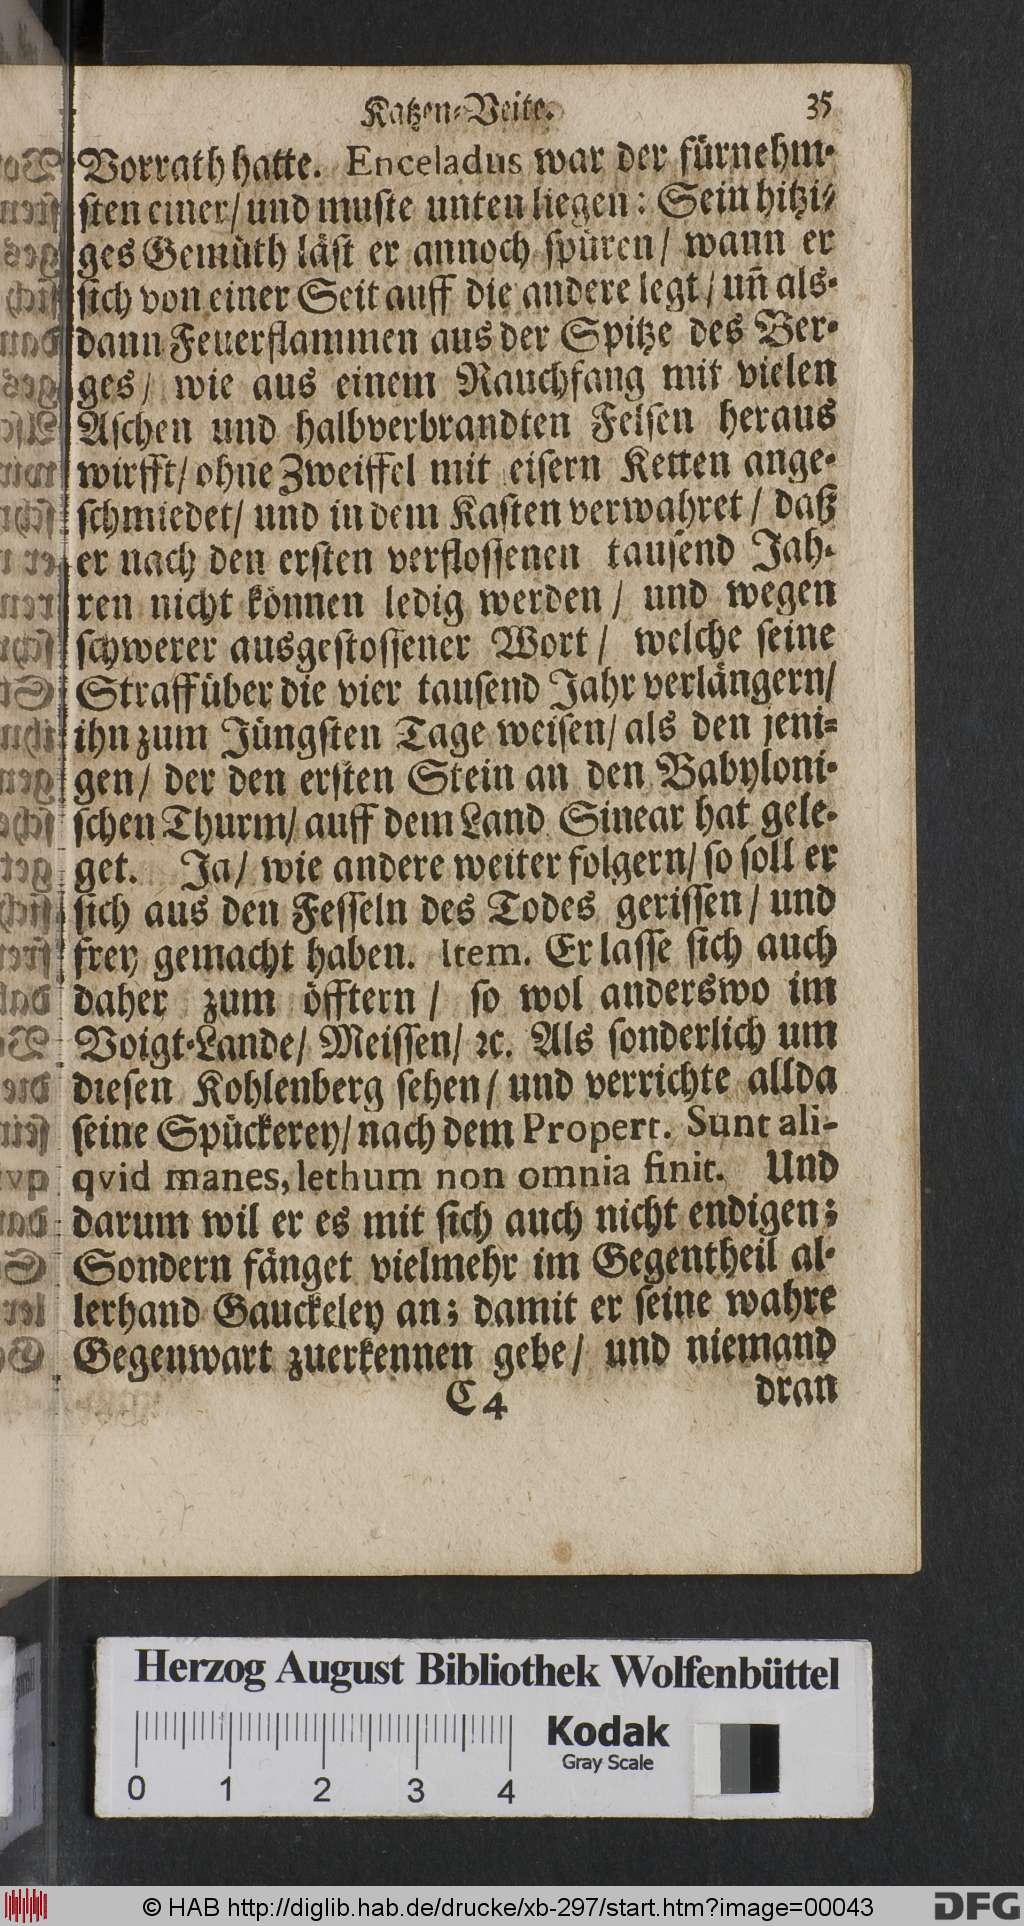 Katzen-Veite. 35
Vorrath hatte. Enceladus war der fürnehm-
sten einer/ und muste unten liegen: Sein hitzi-
ges Gemüth läst er annoch spüren/ wann er
sich von einer Seit auff die andere legt/ uñ als-
dann Feuerflammen aus der Spitze des Ber-
ges/ wie aus einem Rauchfang mit vielen
Aschen und halbverbrandten Felsen heraus
wirfft/ ohne Zweiffel mit eisern Ketten ange-
schmiedet/ und in dem Kasten verwahret/ daß
er nach den ersten verflossenen tausend Jah-
ren nicht können ledig werden/ und wegen
schwerer ausgestossener Wort/ welche seine
Straff über die vier tausend Jahr verlängern/
ihn zum Jüngsten Tage weisen/ als den jeni-
gen/ der den ersten Stein an den Babyloni-
schen Thurm/ auff dem Land Sinear hat gele-
get. Ja/ wie andere weiter folgern/ so soll er
sich aus den Fesseln des Todes gerissen/ und
frey gemacht haben. Item. Er lasse sich auch
daher zum öfftern/ so wol anderswo im
Voigt-Lande/ Meissen/ ꝛc. Als sonderlich um
diesen Kohlenberg sehen/ und verrichte allda
seine Spückerey/ nach dem Propert. Sunt ali-
qvid manes, lethum non omnia finit. Und
darum wil er es mit sich auch nicht endigen;
Sondern fänget vielmehr im Gegentheil al-
lerhand Gauckeley an; damit er seine wahre
Gegenwart zuerkennen gebe/ und niemand
C 4 dran
Herzog August Bibliothek Wolfenbüttel
Kodak
Gray Scale
0 1 2 3 4
© HAB http://diglib.hab.de/drucke/xb-297/start.htm?image=00043
DFG